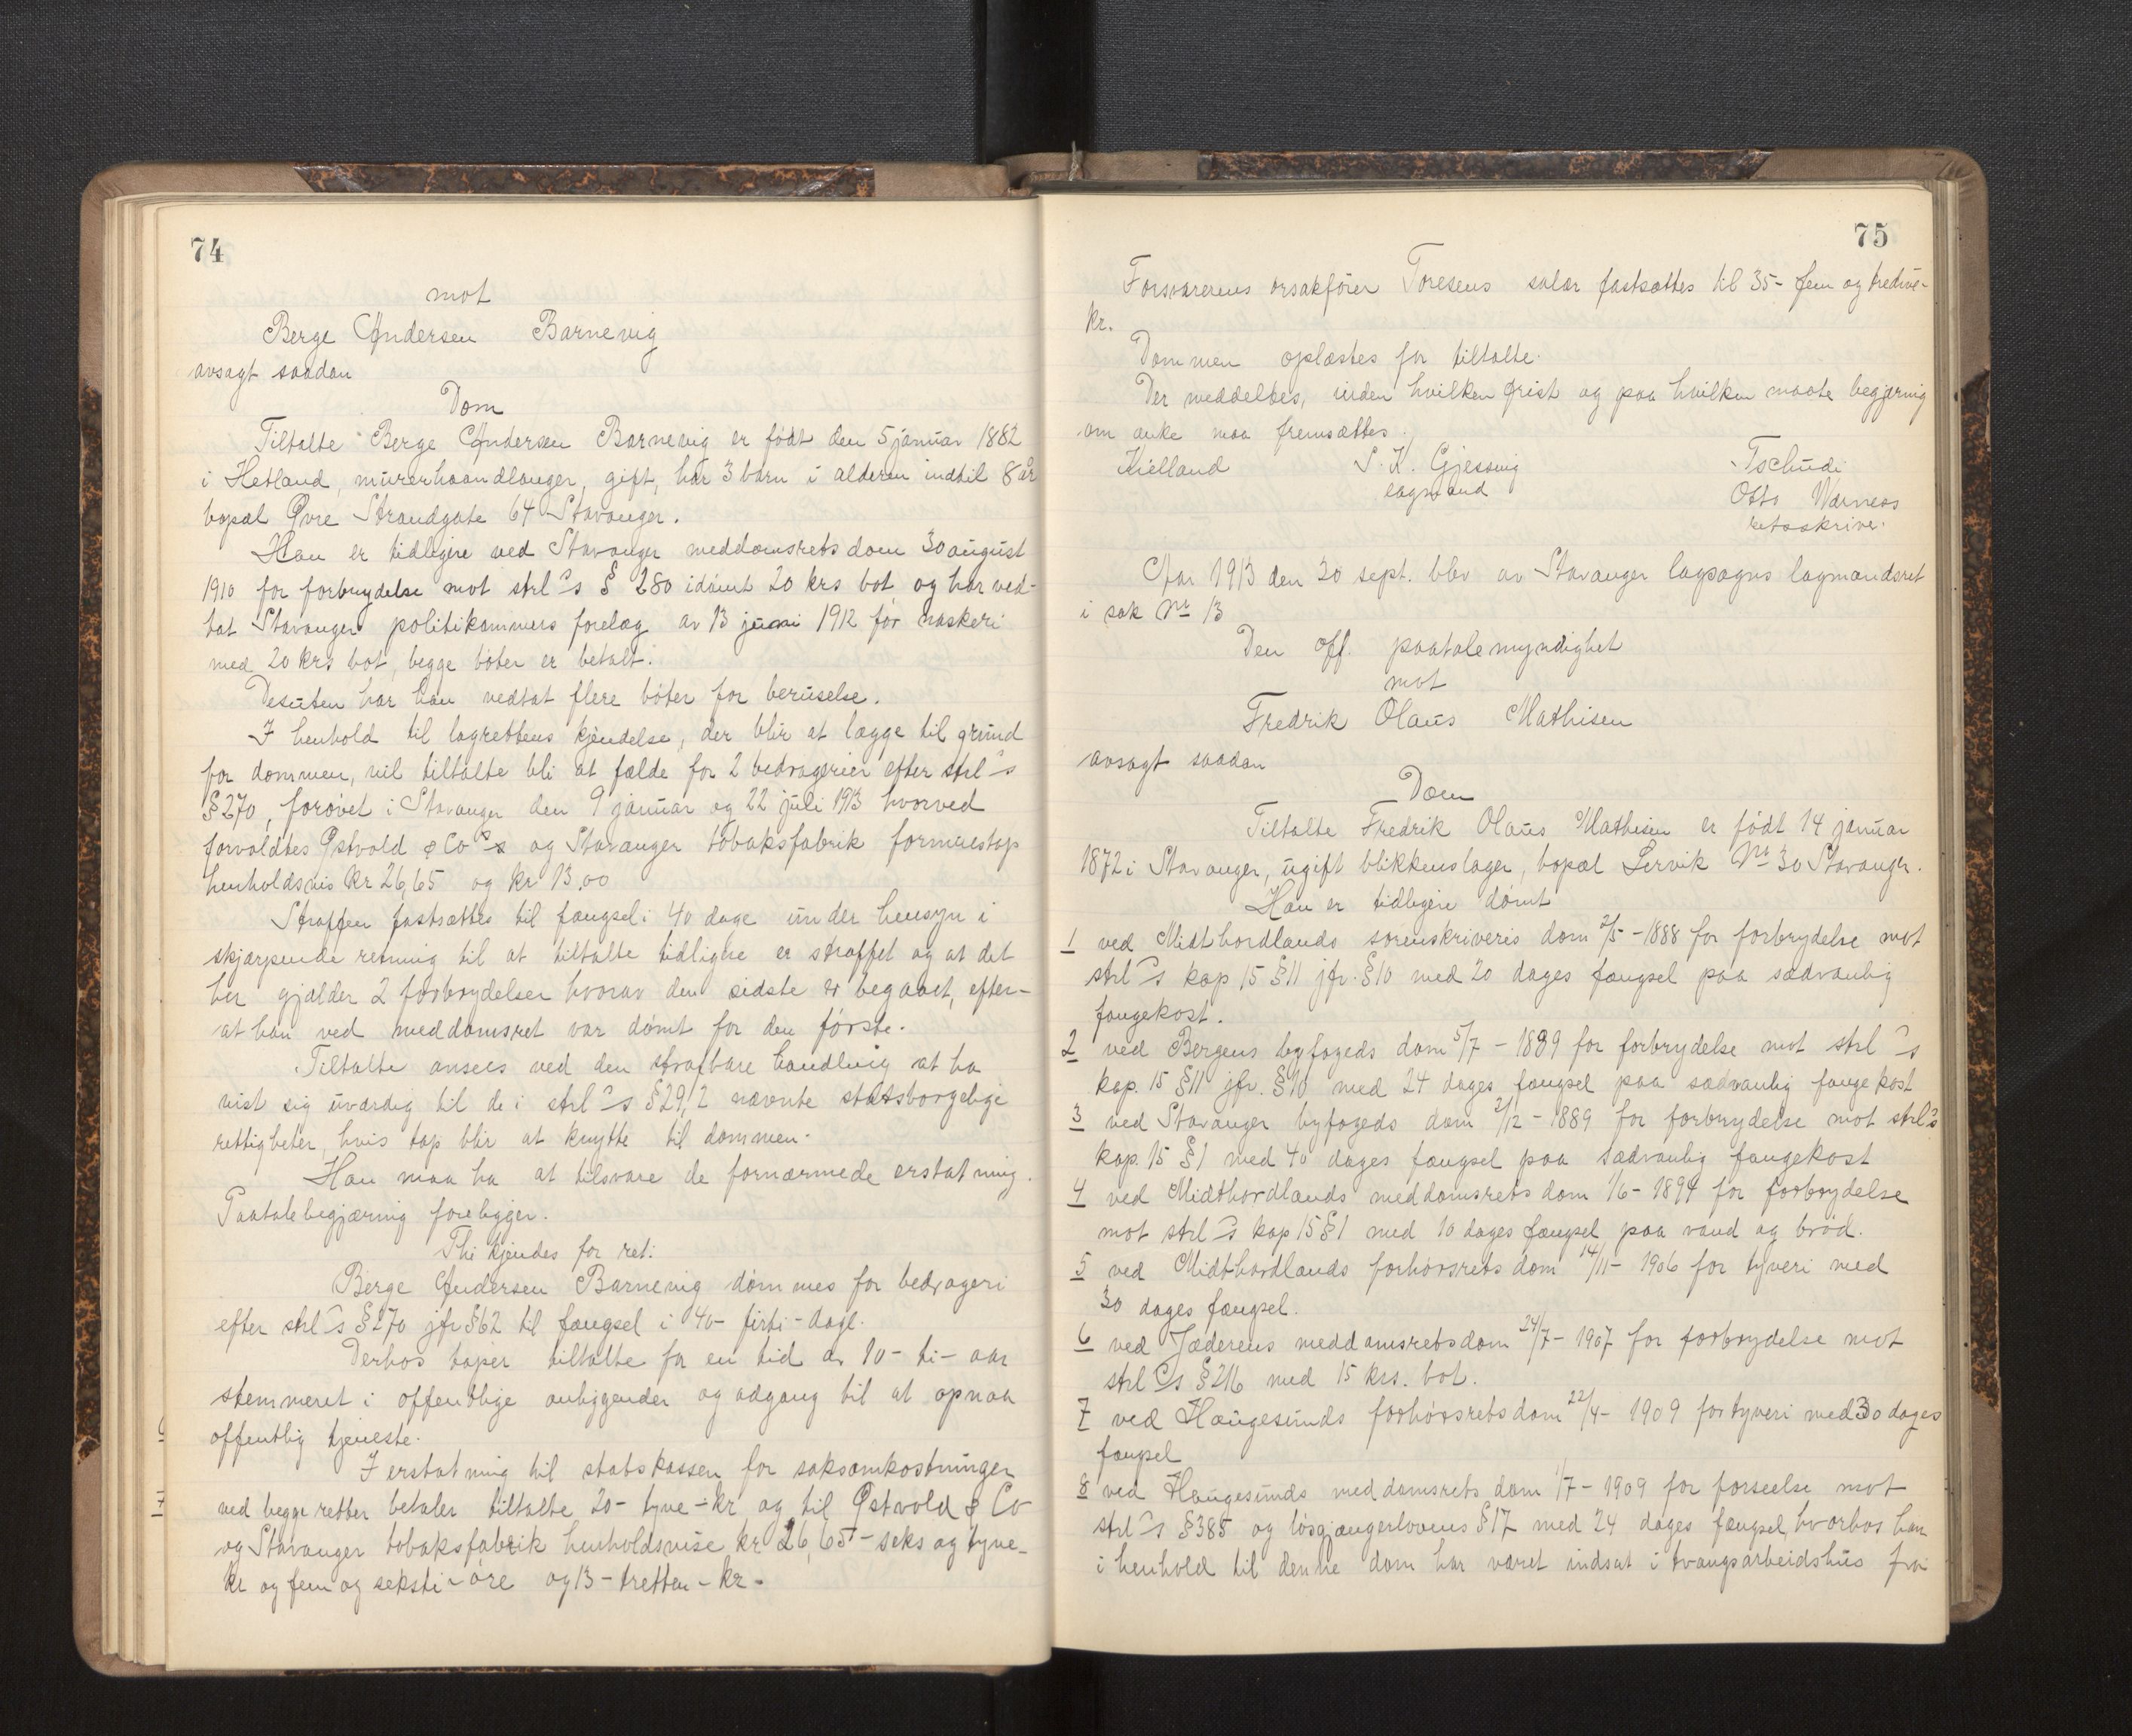 74
mot
Berge Andersen Barnevig
avsagt saadan
Dom
Tiltalte Berge Andersen Barnevig er født den 5 januar 1882
i Hetland, murerhaandlanger, gift, har 3 barn i alderen indtil 8 år
bopæl Øvre Strandgate 64 Stavanger.
Han er tidligere ved Stavanger meddomsrets dom 30 august
1910 for forbrydelse mot strl s § 280 idømt 20 krs bot og har ved-
tat Stavanger politikammers forelæg av 13 juni 1912 for naskeri
med 20 krs bot, begge bøter er betalt.
Desuten har han vedtat flere bøter for beruselse.
I henhold til lagrettens kjendelse, der blir at lægge til grund
for dommen, vil tiltalte bli at fælde for 2 bedragerier efter strl s
§ 270, forøvet i Stavanger den 9 januar og 22 juli 1913 hvorved
forvoldtes Østvold & Co s og Stavanger tobaksfabrik formuestap
henholdsvis kr 26,65 og kr 13,00
Straffen fastsættes til fængsel i 40 dage under hensyn i
skjærpende retning til at tiltalte tidligere er straffet og at det
her gjælder 2 forbrydelser hvorav den sidste er begaaet, efter-
at han ved meddomsret var dømt for den første.
Tiltalte ansees ved den strafbare handling at ha
vist sig uværdig til de i strl s § 29,2 nævnte statsborgelige
rettigheter, hvis tap blir at knytte til dommen.
Han maa ha at tilsvare de fornærmede erstatning.
Paatalebegjæring foreligger.
Thi kjendes for ret:
Berge Andersen Barnevig dømmes for bedrageri
efter strl s § 270 jfr § 62 til fængsel i 40- firti - dage.
Derhos taper tiltalte for en tid av 10- ti- aar
stemmeret i offentlige anliggender og adgang til at opnaa
offentlig tjeneste.
I erstatning til statskassen for saksomkostninger
ved begge retter betaler tiltalte 20- tyve - kr og til Østvold & Co
og Stavanger tobaksfabrik henholdsvise kr 26,65 - seks og tyve-
kr og fem og seksti - øre og 13 - tretten - kr -
75
Forsvarerens orsakfører Toresens salær fastsættes til 35- fem og tredive-
kr.
Dommen oplæstes for tiltalte.
Der meddeltes, inden hvilken frist og paa hvilken maate begjæring
om anke maa fremsættes.
Kielland S. K. Gjessing Tschudi
lagmand Otto Warness
retsskriver.
Aar 1913 den 30 sept. blev av Stavanger lagsogns lagmandsret
i sak Nr 13
Den off. paatalemyndighet
mot
Fredrik Olaus Mathisen
avsagt saadan
Dom
Tiltalte Fredrik Olaus Mathisen er født 14 januar
1872 i Stavanger, ugift blikkenslager, bopæl Lervik Nr 30 Stavanger.
Han er tidligere dømt
1 ved Midthordlands sorenskriveris dom 2/5 - 1888 for forbrydelse mot
strl s kap 15 § 11 jfr. § 10 med 20 dages fængsel paa sædvanlig
fangekost.
2 ved Bergens byfogeds dom 5/7 - 1889 for forbrydelse mot strl s
kap. 15 § 11 jfr. § 10 med 24 dages fængsel paa sædvanlig fangekost
3 ved Stavanger byfogeds dom 2/12 - 1889 for forbrydelse mot strl s
kap. 15 § 1 med 40 dages fængsel paa sædvanlig fangekost
4 ved Midthordlands meddomsrets dom 1/6 - 1894 for forbrydelse
mot strl s kap 15 § 1 med 10 dages fængsel paa vand og brød.
5 ved Midthordlands forhørsrets dom 14/11 - 1906 for tyveri med
30 dages fængsel.
6 ved Jæderens meddomsrets dom 24/7 - 1907 for forbrydelse mot
strl s § 216 med 15 krs. bot.
7 ved Haugesunds forhørsrets dom 22/4 - 1909 for tyveri med 30 dages
fængsel
8 ved Haugesunds meddomsrets dom 1/7 - 1909 for forseelse mot
strl s § 385 og løsgjængerlovens § 17 med 24 dages fængsel, hvorhos han
i henhold til denne dom har været indsat i tvangsarbeidshus fra